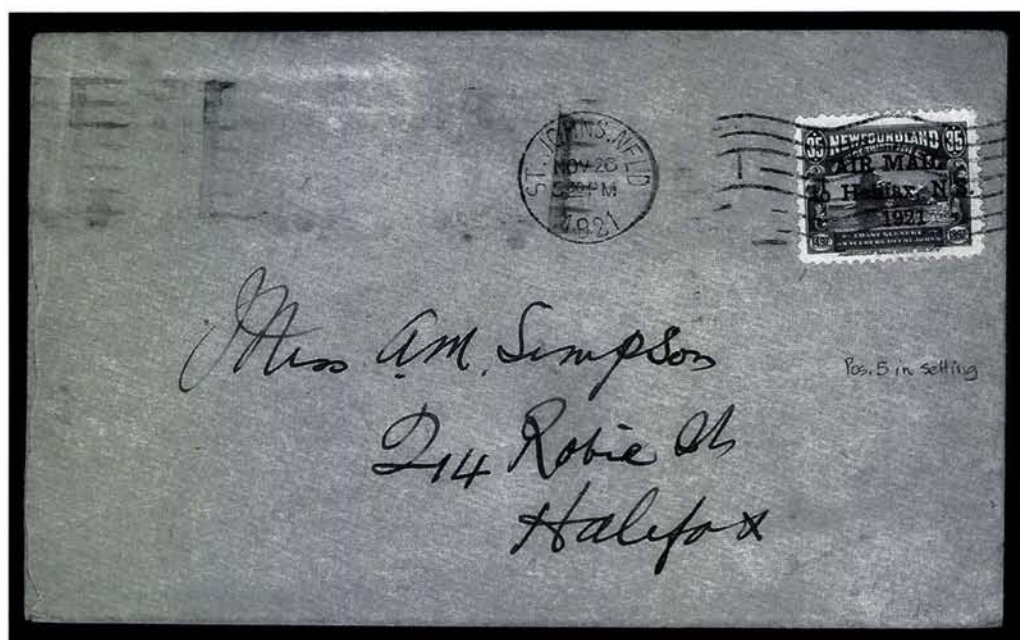 ST. JOHN'S. NFLD
NOV 26
PM
1921
35 NEWFOUNDLAND 35
AIR MAIL
to Halifax, N.S.
1921
1497 1897
Miss A.M. Simpson
214 Robie St
Halifax
Pos. 5 in setting